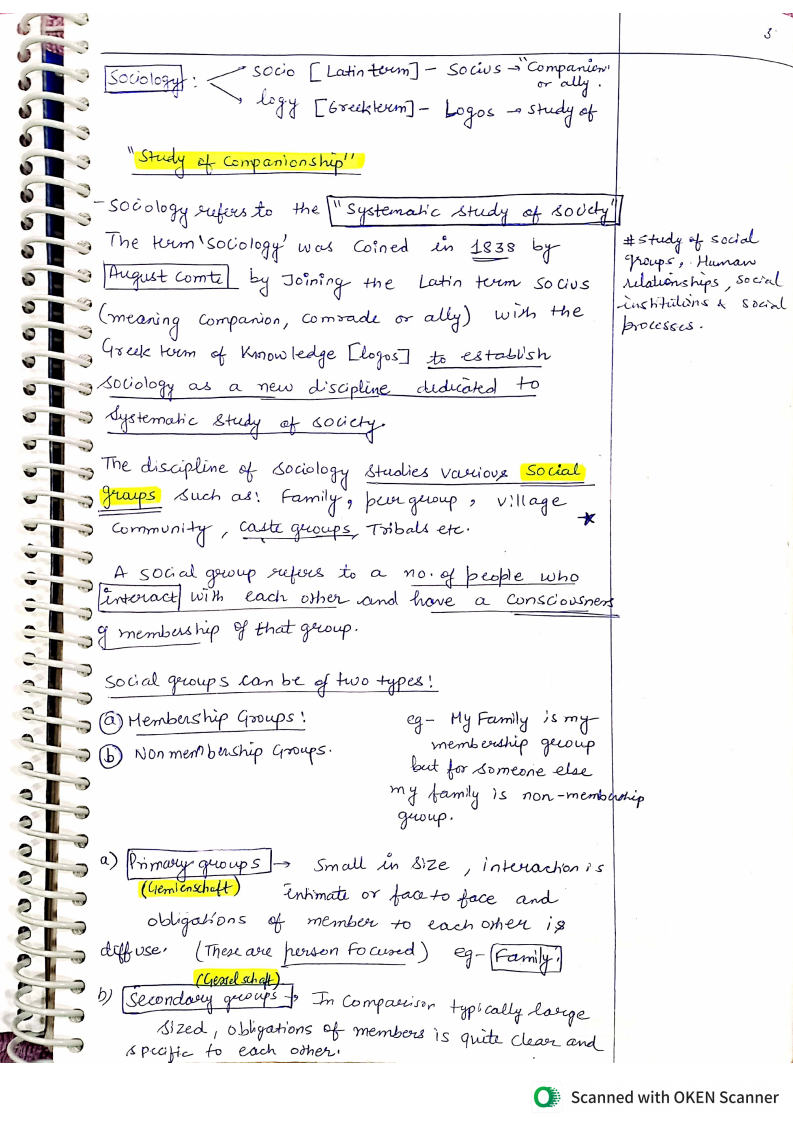 3
Sociology : socio [Latin term] - Socius → "Companion"
or ally.
logy [Greek term] - Logos → study of
"Study of Companionship"
- Sociology refers to the "Systematic study of society"
The term 'sociology' was coined in 1838 by
August Comte by Joining the Latin term socius
(meaning companion, comrade or ally) with the
Greek term of Knowledge [logos] to establish
sociology as a new discipline dedicated to
Systematic study of society.
# study of social
groups, Human
relationships, social
institutions & social
processes.
The discipline of sociology studies various social
groups such as: Family, peer group, village
community, caste groups, Tribals etc.
A social group refers to a no. of people who
interact with each other and have a consciousness
of membership of that group.
Social groups can be of two types:
(a) Membership Groups:
(b) Non membership Groups.
eg- My Family is my
membership group
but for someone else
my family is non-membership
group.
a) Primary groups → Small in size, interaction is
(Gemienschaft) intimate or face to face and
obligations of member to each other is
diffuse. (These are person focused) eg- Family.
(Gesselschaft)
b) Secondary groups → In Comparison typically large
sized, obligations of members is quite clear and
specific to each other.
Scanned with OKEN Scanner